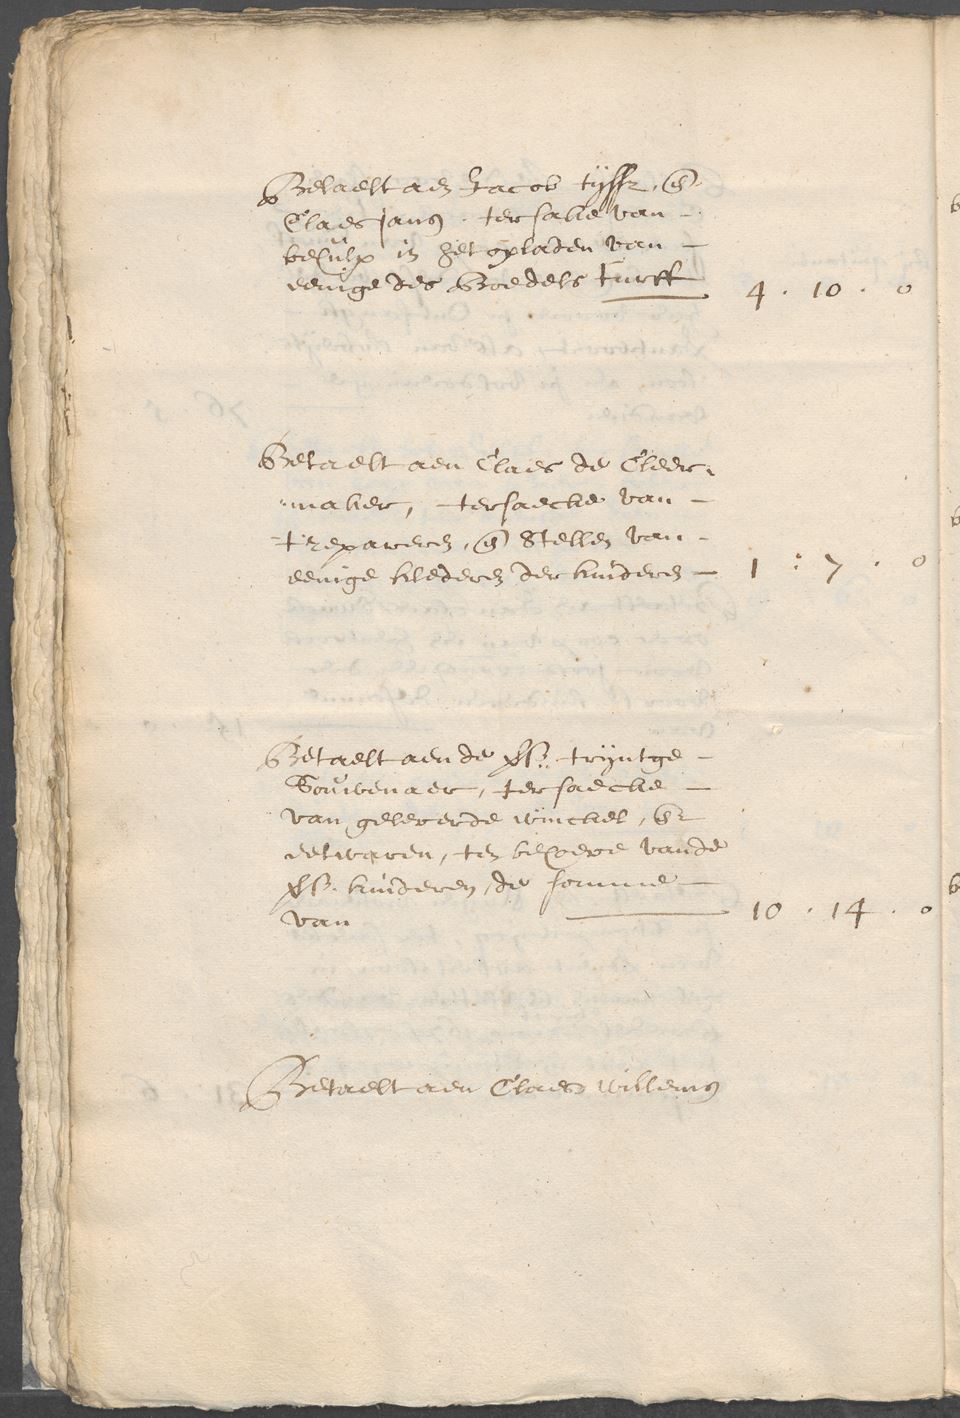 Betaelt aen Jacob tijssz, en
Claes jansz. ter sake van -
behulp in het opladen van -
eenige des Boedels turff 4 . 10 . 0
Betaelt aen Claes de Cleer-
maker, ter saecke van -
't repareren, en stellen van -
eenige klederen der kinderen - 1 : 7 . 0
Betaelt aen de trijntge -
Souwenaer, ter saecke -
van geleverde winckel, en
eetwaren, ten behoeve vande
kinderen, de somme -
van 10 . 14 . 0
Betaelt aen Claes willemsz